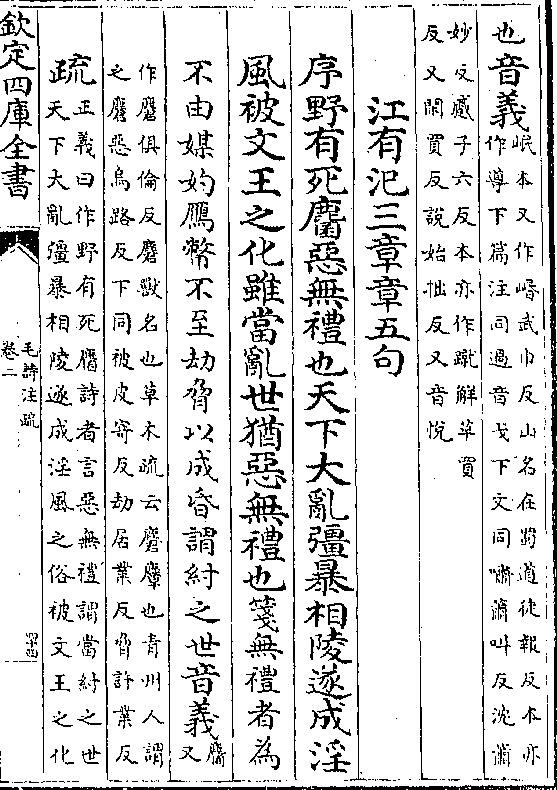 也音義岷本又作㟭武巾反山名在蜀道徒報反本亦
作導下篇注同過音戈下文同嘯蕭叫反沈蕭
妙反蹙子六反本亦作蹴解革買
反又閑買反說始拙反又音悅
江有汜三章章五句
序野有死麕惡無禮也天下大亂彊暴相陵遂成淫
風被文王之化雖當亂世猶惡無禮也箋無禮者為
不由媒妁鴈幣不至劫脅以成昏謂紂之世音義麕又
作麏俱倫反麏獸名也草木疏云麏麞也青州人謂
之麏惡烏路反下同被皮寄反劫居業反脅許業反
疏正義曰作野有死麕詩者言惡無禮謂當紂之世
天下大亂彊暴相陵遂成淫風之俗被文王之化
欽定四庫全書
毛詩注疏
卷二